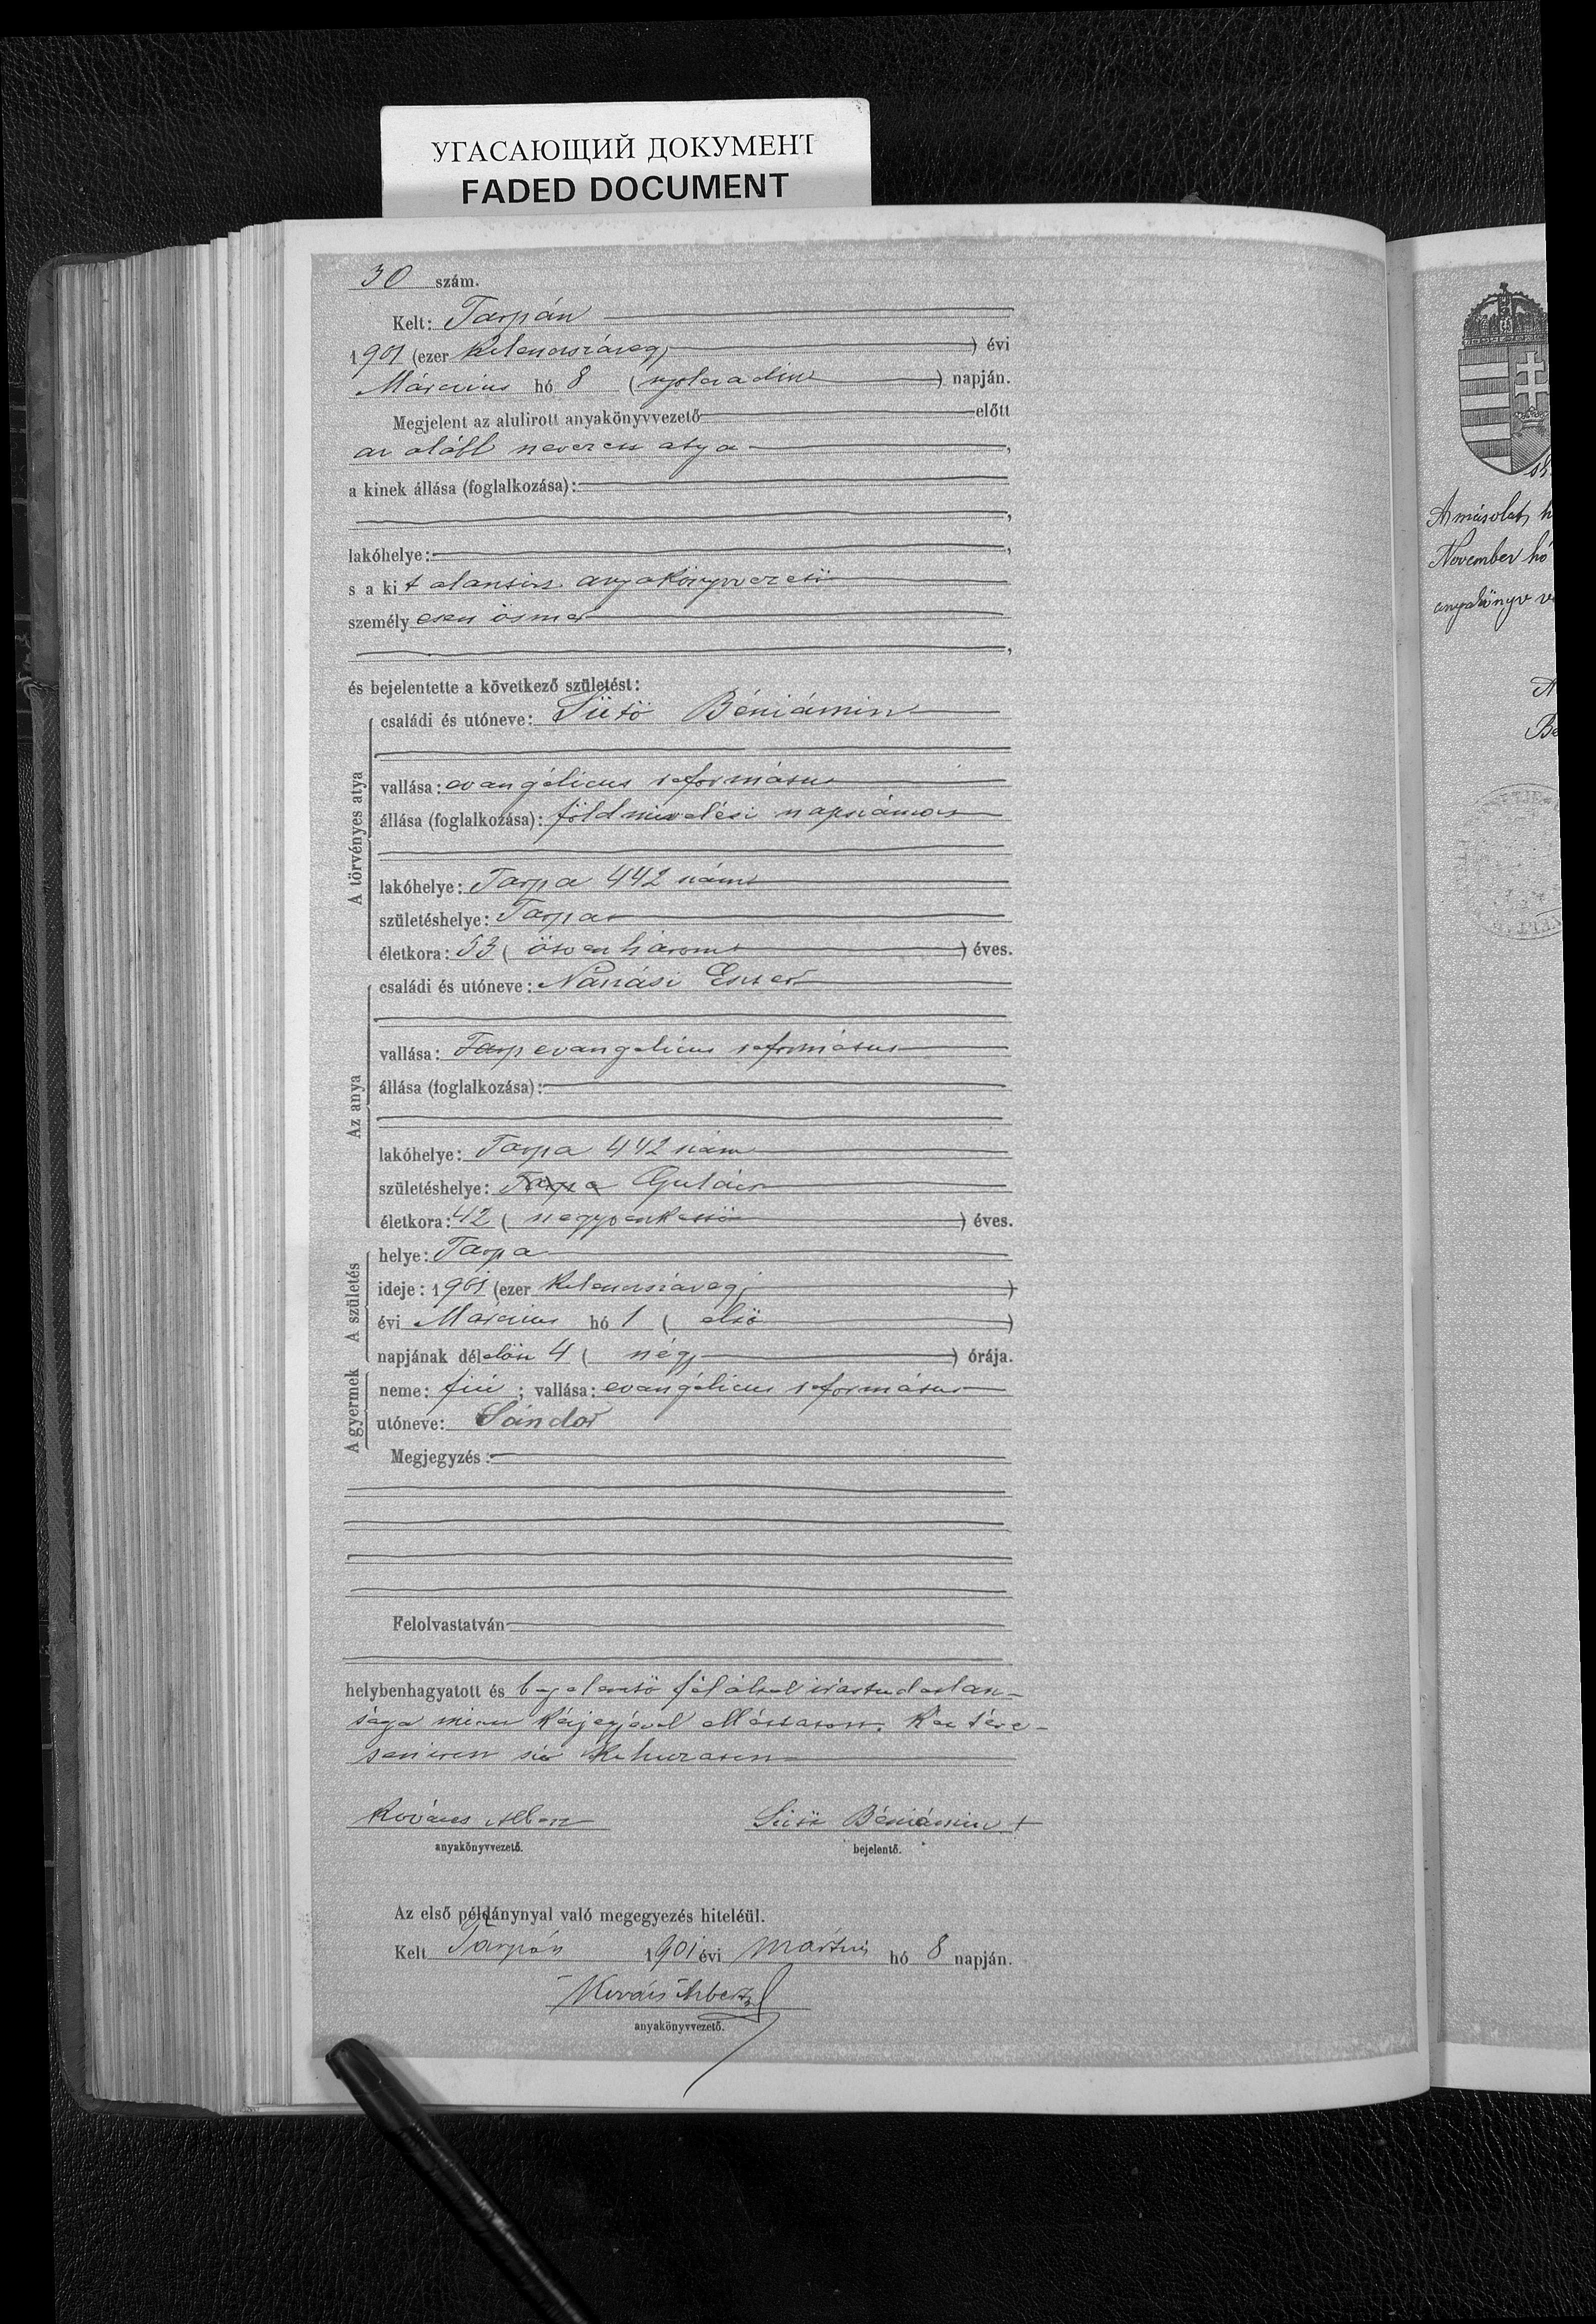 УГАСАЮЩИЙ ДОКУМЕНТ
FADED DOCUMENT
30 szám.
Kelt: Tarpán
1901 (ezer kilenczszázegy) évi
Márczius hó 8 (nyolczadik) napján.
Megjelent az alulirott anyakönyvvezető előtt
az alább nevezett atya,
a kinek állása (foglalkozása):
lakóhelye:
s a kit alantirt anyakönyvvezető
személyesen ösmer
és bejelentette a következő születést:
A törvényes atya
családi és utóneve: Sütő Béniámin
vallása: evangélicus református
állása (foglalkozása): földmivelési napszámos
lakóhelye: Tarpa 442 szám
születéshelye: Tarpa
életkora: 53 (ötvenhárom) éves.
Az anya
családi és utóneve: Nánási Eszter
vallása: Tarp evangelicus református
állása (foglalkozása):
lakóhelye: Tarpa 442 szám
születéshelye: Tarpa Gulács
életkora: 42 (negyvenkettő) éves.
A születés
helye: Tarpa
ideje: 1901 (ezer kilenczszázegy)
évi Márczius hó 1 (első)
napjának délelőtt 4 (négy) órája.
A gyermek
neme: fiú; vallása: evangélicus református
utóneve: Sándor
Megjegyzés:
Felolvastatván
helybenhagyatott és bejelentő fél által irástudatlan-
sága miatt kézjegyével elláttatott. Két
szó kihuzatott
Kovács Albert
anyakönyvvezető.
Sütő Béniámin +
bejelentő.
Az első példánynyal való megegyezés hiteléül.
Kelt Tarpán 1901 évi martius hó 8 napján.
Kovács Albert
anyakönyvvezető.
A másolat
November hó
anyakönyv